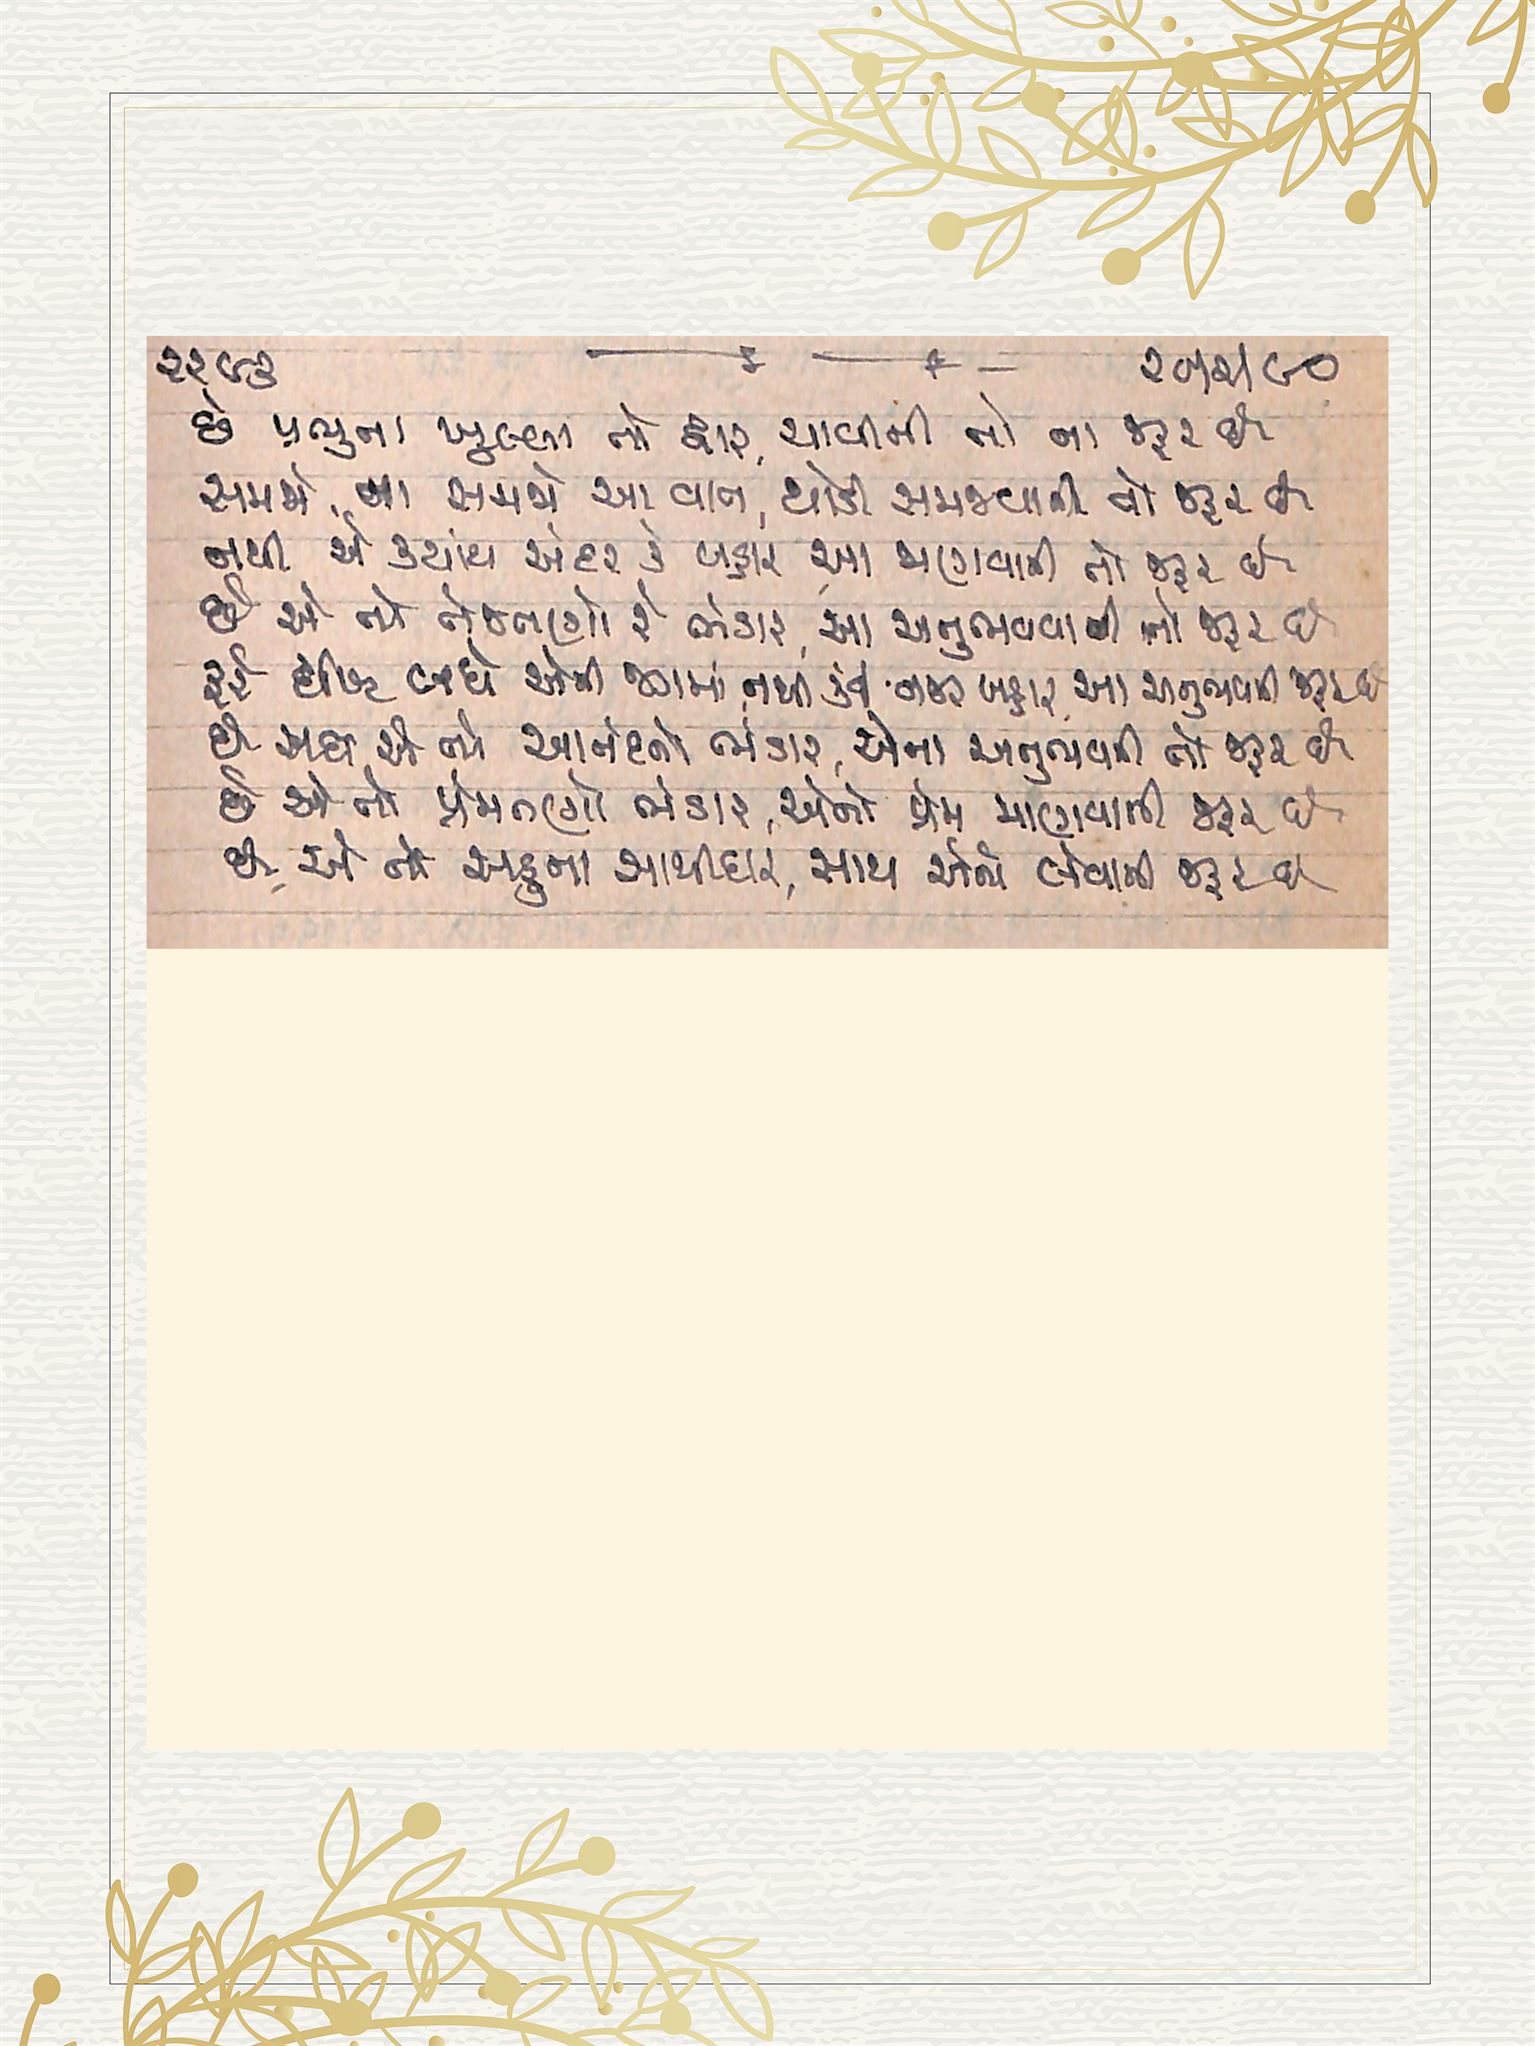 ૨૨૯૩ ૨૫/૨/૯૦
છે પ્રભુના ખુલ્લા તો દ્વાર, ચાવીની તો ના જરૂર છે
સમજો, ના સમજો આ વાત, થોડી સમજવાની તો જરૂર છે
નથી એ ક્યાંય અંદર કે બહાર, આ જાણવાની તો જરૂર છે
છે એ તો તેજતણો રે ભંડાર, આ અનુભવવાની તો જરૂર છે
કંઈ બધે એની જાણમાં, નથી કંઈ નજર બહાર, આ અનુભવની જરૂર છે
છે સદા એ તો આનંદનો ભંડાર, એના અનુભવની તો જરૂર છે
છે એ તો પ્રેમતણો ભંડાર, એનો પ્રેમ માણવાની જરૂર છે
છે એ તો સહુના સાથીદાર, સાથ એનો લેવાની જરૂર છે